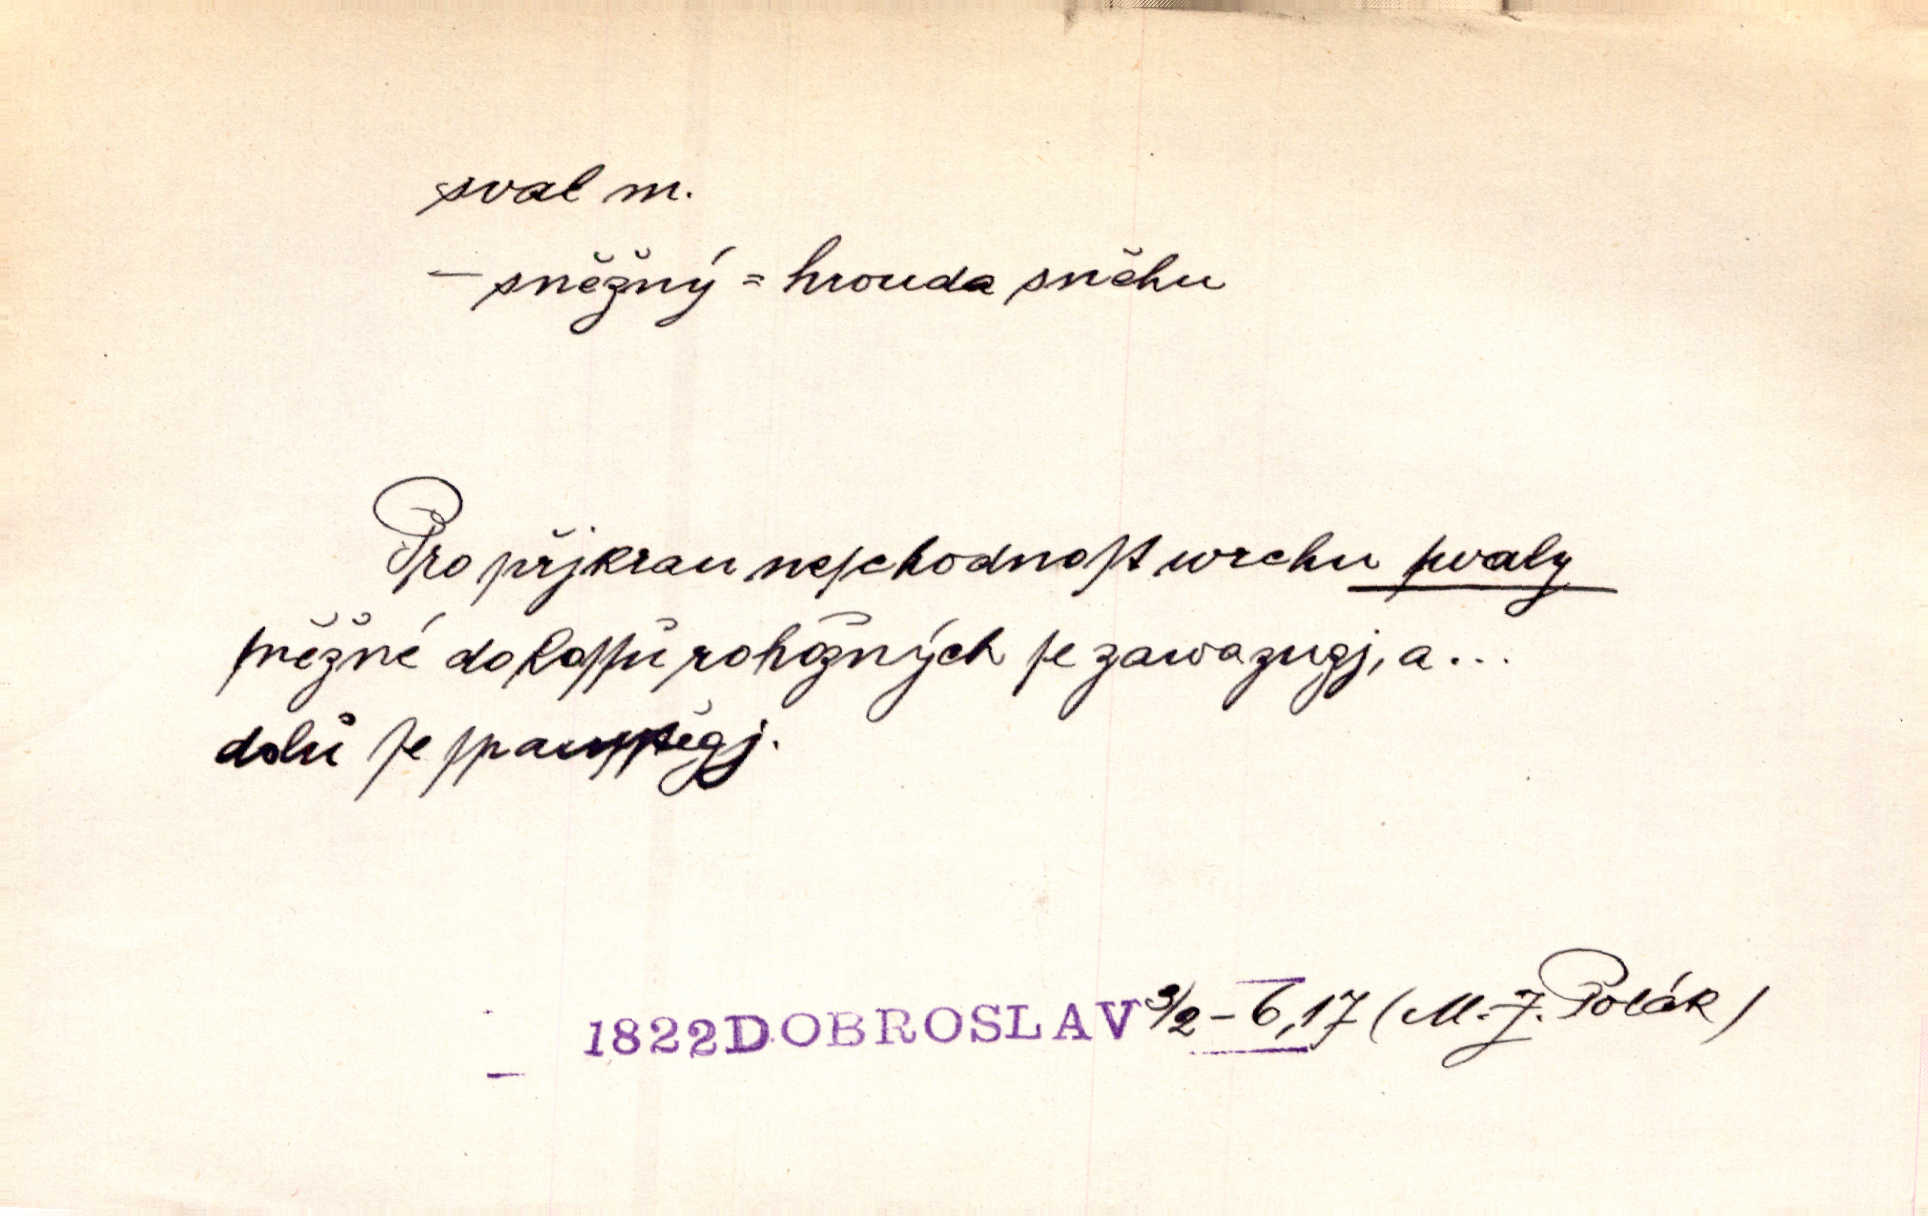 sval m.
— sněžný = hrouda sněhu
Pro přjkrau neſchodnoſt wrchu ſwaly
ſněžné do koſſů rohožných ſe zawazugj, a...
dolů ſe ſpauſſtěgj.
1822 DOBROSLAV 3/2 – 6,17 (M. J. Polák)